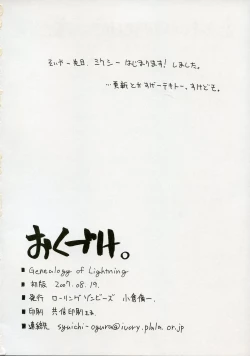 そいやー先日、ミクシーはじまります！しました。
…更新とかすげーテキトー。すけどそ。
おくづけ。
■ Genealogy of Lightning
■ 初版 2007.08.19.
■ 発行 ローリングゾンビーズ 小倉脩一.
■ 印刷 共信印刷さま.
■ 連絡先 syuichi-ogura@ivory.plala.or.jp